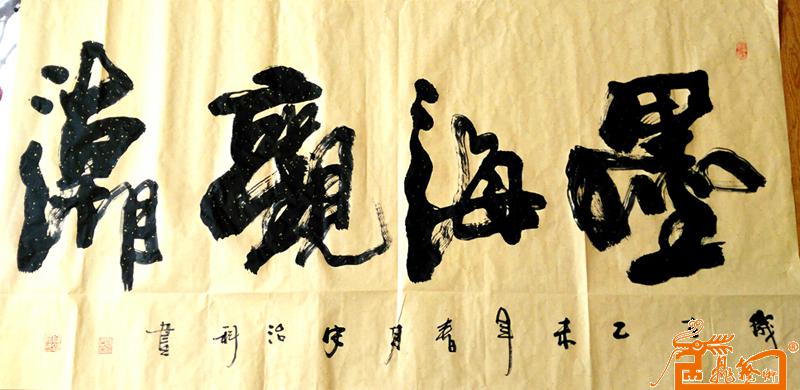 墨海觀潮
歲在乙未年春月宋治科書